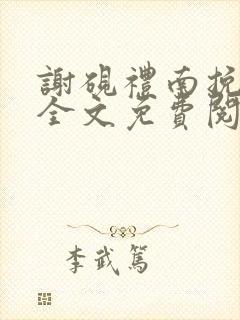 謝硯禮南挽
全文免費閱
李武篤